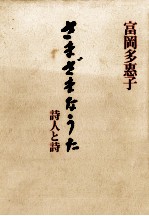 富岡多惠子
さまざまなうた
詩人と詩